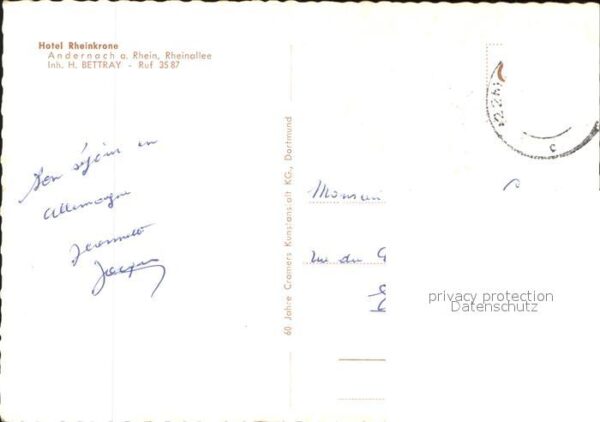 Hotel Rheinkrone
Andernach a. Rhein, Rheinallee
Inh. H. BETTRAY - Ruf 3587
Bon séjour en
Allemagne
Jacques
60 Jahre Cramers Kunstanstalt KG., Dortmund
Monsieur
rue du
privacy protection
Datenschutz